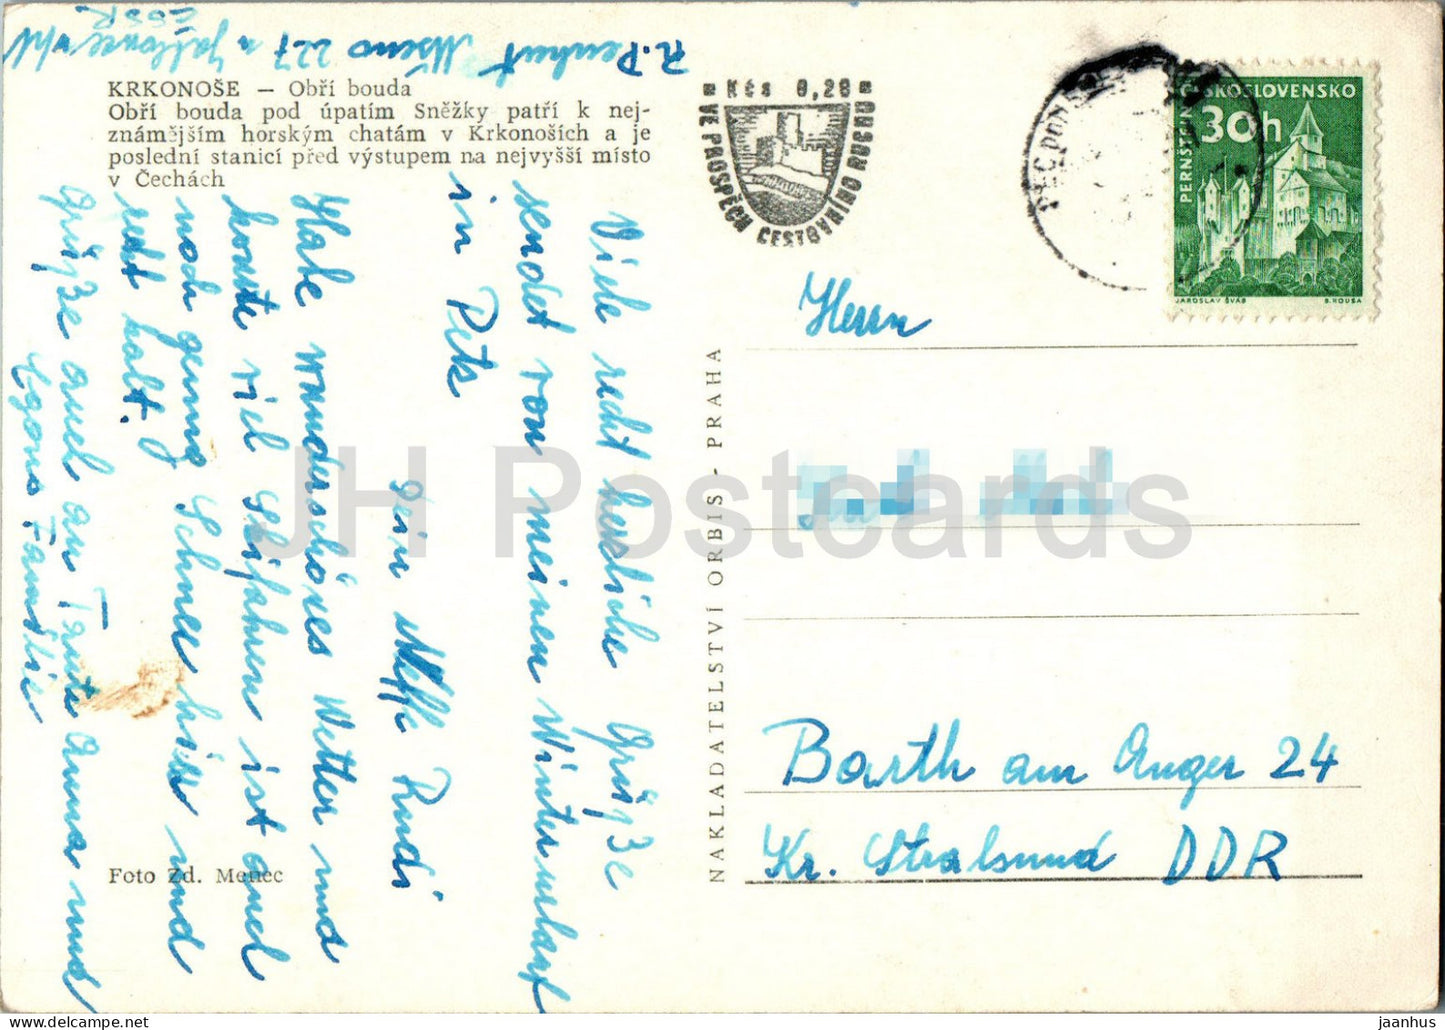 R. Penhut Mšeno 227 n Jablonec n/N
ČSSR.
KRKONOŠE — Obří bouda
Obří bouda pod úpatím Sněžky patří k nej-
známějším horským chatám v Krkonoších a je
poslední stanicí před výstupem na nejvyšší místo
v Čechách
Viele recht herzliche Grüße
sendet von meinen Winterurlaub
in Pets
dein Neffe Rudi
Habe wunderschönes Wetter und
konnte viel Skifahren ist auch
noch genug Schnee hier und
recht kalt.
Grüße auch an Tante Anna und
Egons Familie
Foto Zd. Menec
NAKLADATELSTVÍ ORBIS - PRAHA
Kčs 0,20
VE PROSPĚCH CESTOVNÍHO RUCHU
PEC POD
ČESKOSLOVENSKO
30h
PERNŠTEJN
JAROSLAV ŠVÁB
B. HOUSA
Herrn
Barth am Anger 24
Kr. Stralsund DDR
JH Postcards
delcampe.net
jaanhus